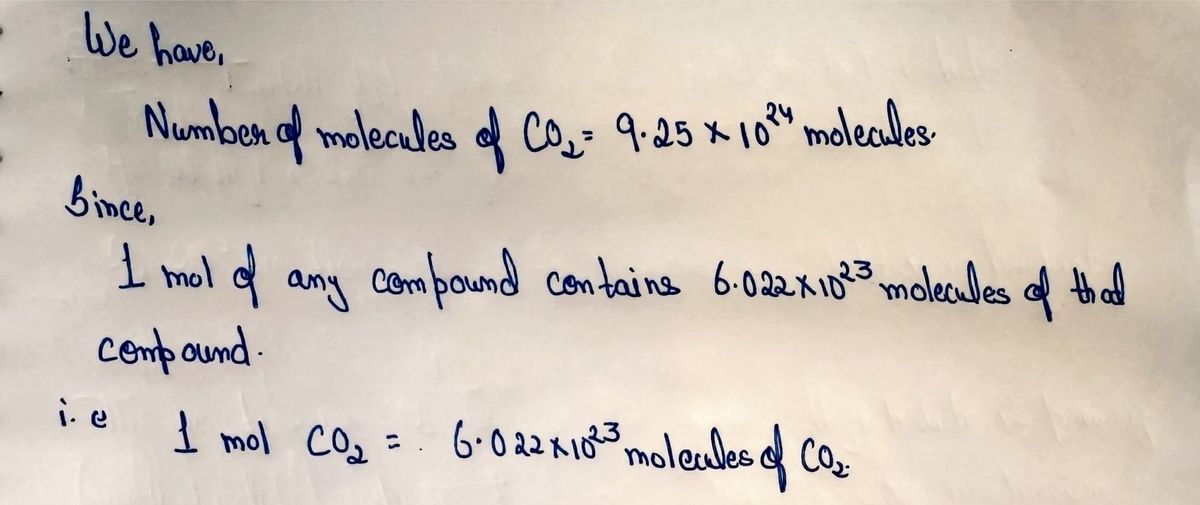 We have,
Number of molecules of CO₂ = 9.25 × 10²⁴ molecules.
Since,
1 mol of any compound contains 6.022×10²³ molecules of that
compound.
i.e 1 mol CO₂ = 6.022×10²³ molecules of CO₂.